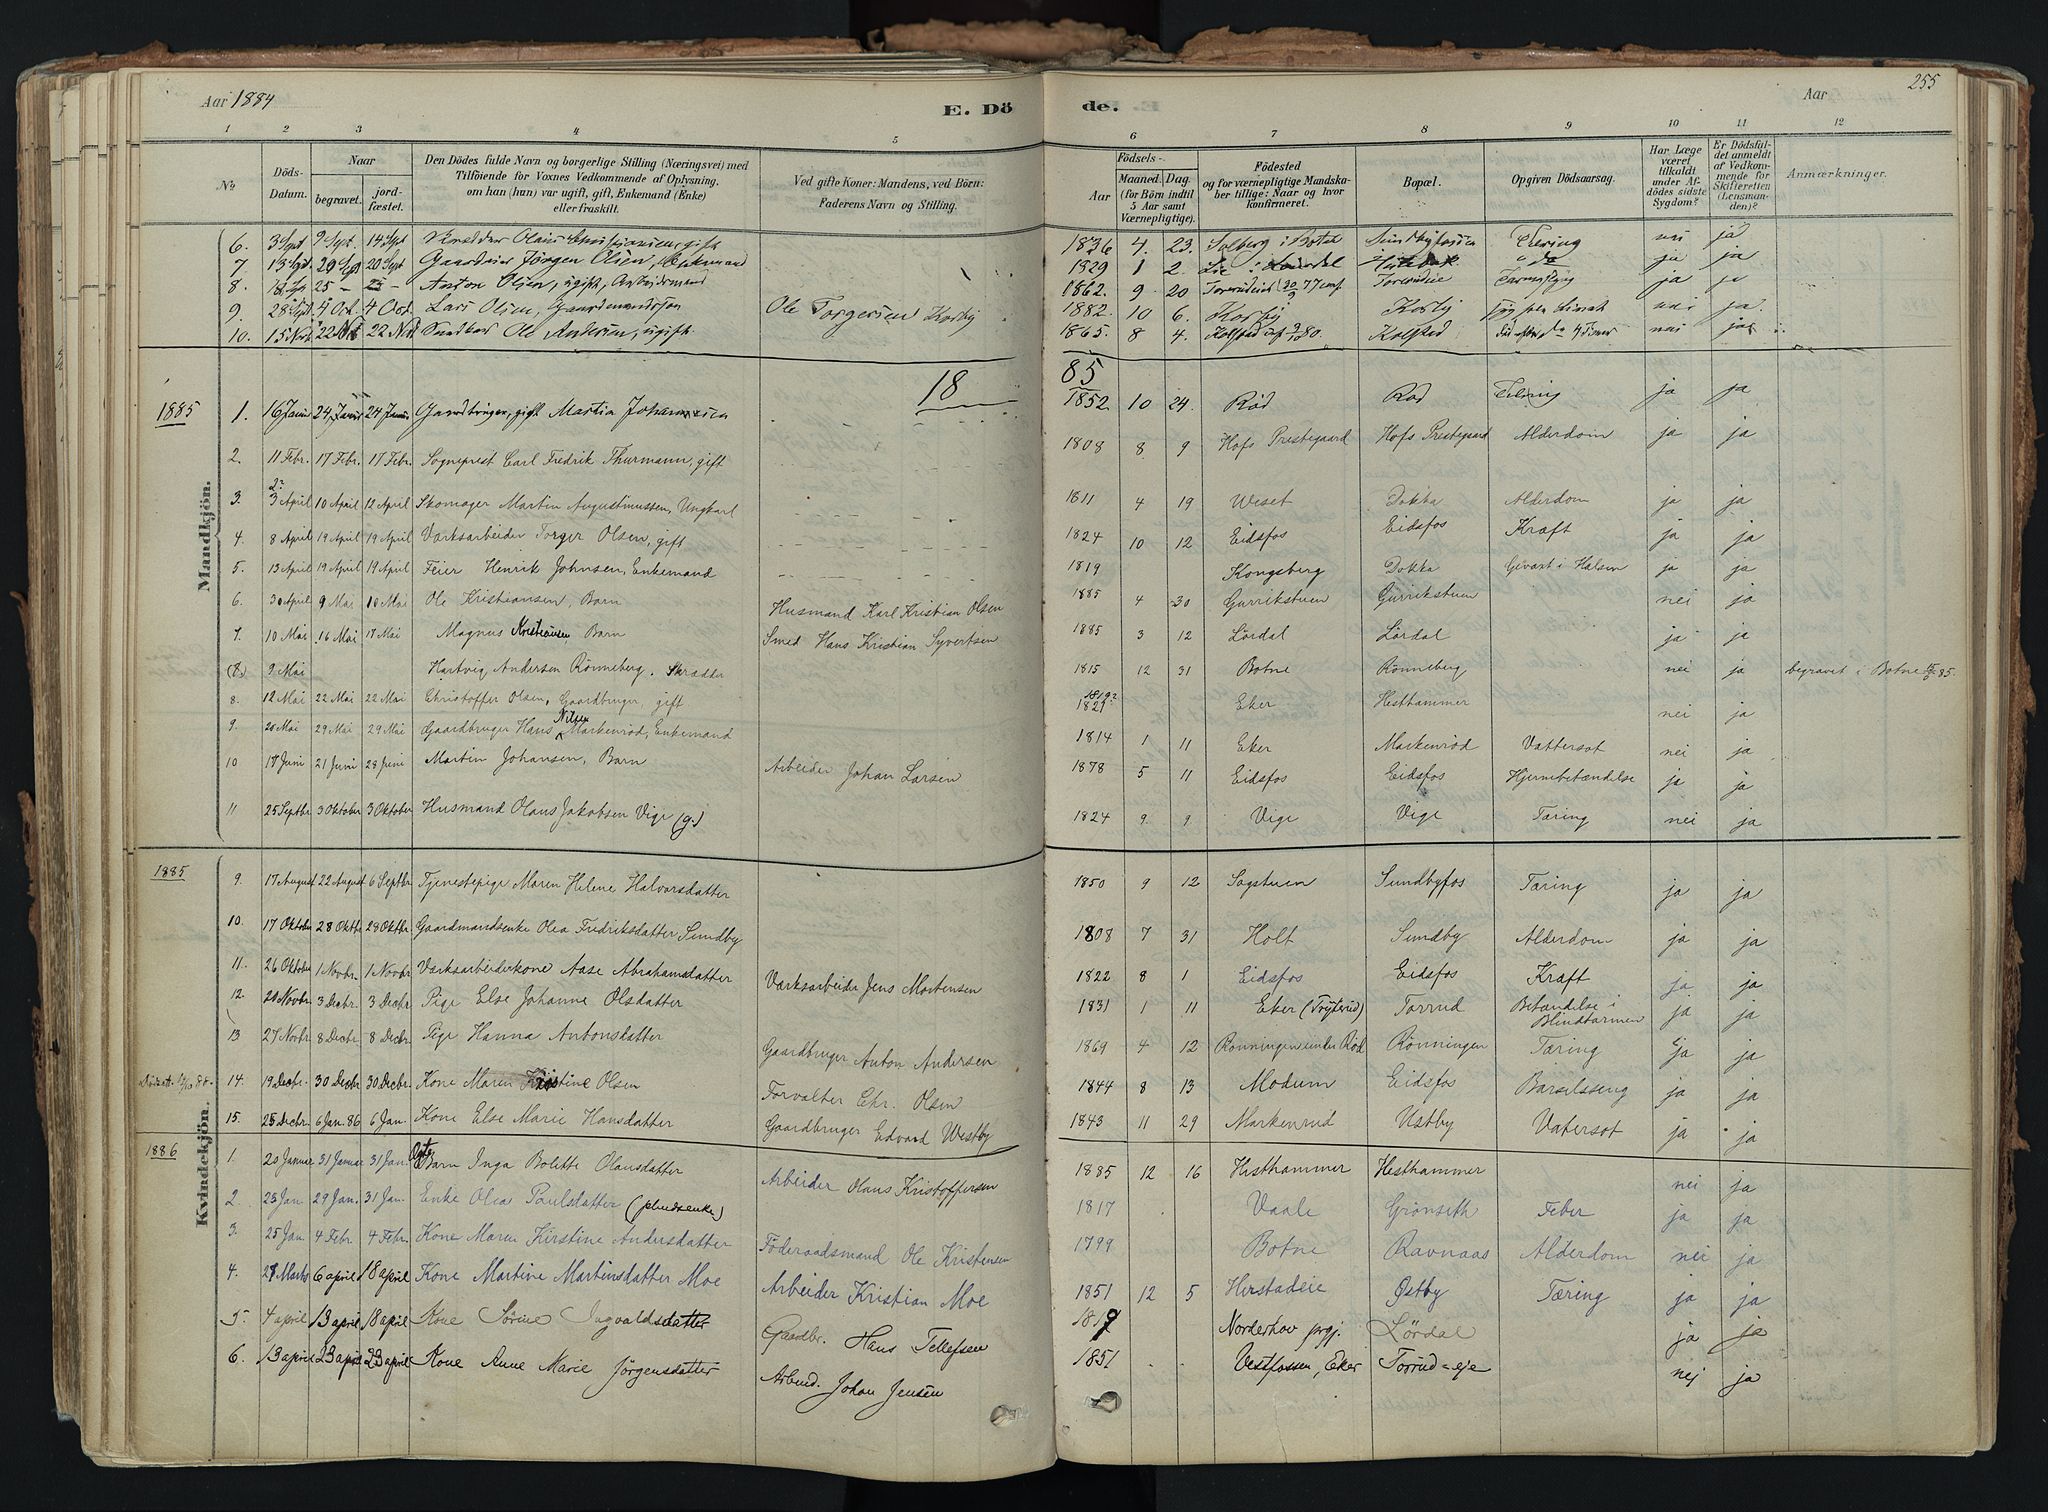 Aar 1884 E. Dö de. Aar 255
1 2 3 4 5 6 7 8 9 10 11 12
No. Döds-Datum. Naar begravet. jordfæstet. Den Dödes fulde Navn og borgerlige Stilling (Næringsvei) med Tilföiende for Voxnes Vedkommende af Oplysning, om han (hun) var ugift, gift, Enkemand (Enke) eller fraskilt. Ved gifte Koner: Mandens, ved Börn: Faderens Navn og Stilling. Födsels- Aar Maaned. Dag (for Börn indtil 5 Aar samt Værnepligtige). Födested og for værnepligtige Mandskaber tillige: Naar og hvor konfirmeret. Bopæl. Opgiven Dödsaarsag. Har Læge været tilkaldt under Afdödes sidste Sygdom? Er Dödsfaldet anmeldt af Vedkommende for Skifteretten (Lensmanden)? Anmærkninger.
6. 3 Sept 9 Sept. 14 Sept Olaus gift 1836 4. 23. Solberg i Botne Tæring nei ja
7 13 Sept. 20 Sept Gaardeier Jørgen Olsen, Enkemand 1829 1 2. ja ja
8. 18 Sep 25 - Anton Olsen, ugift, Arbeidsmand 1862. 9 20 ja ja
9. 28 Sept. 4 Oct. 4 Oct. Lars Olsen, Gaardmandssøn Ole Torgersen Korby 1882. 10 6. Korby Korby nei ja.
10. 15 Novb 22 Nov 22 Nov Ole Andersen, ugift 1865. 8 4. Kolstad Kolstad nei ja
18 85
Mandkjön.
1885 1. 16 Januar 24 Januar 24 Januar Gaardbruger, gift Martin Johannesen 1852 10 24. Röd Röd Tæring ja ja
2. 11 Febr. 17 Febr. 17 Febr. Sogneprest Carl Fredrik Thurmann, gift 1808 8 9 Hofs Prestegaard Hofs Prestegaard Alderdom ja ja
3. 3 April 10 April 12 April Skomager Martin Augustinussen, Ungkarl 1811 4 19 Weset Dokka Alderdom ja ja
4. 8 April 19 April 19 April Værksarbeider Torger Olsen, gift 1824 10 12 Eidsfos Eidsfos Kræft ja ja
5. 13 April 19 April 19 April Feier Henrik Johnsen, Enkemand 1819 Kongsberg Dokka Gevæxt i Halsen ja ja
6. 30 April 9 Mai 10 Mai Ole Kristiansen, Barn Husmand Karl Kristian Olsen 1885 4 30 Gurrikstuen Gurrikstuen nei ja
7. 10 Mai 16 Mai 17 Mai Magnus Kristiansen, Barn Smed Hans Kristian Syvertsen 1885 3 12 Lördal Lördal ja ja
(8) 9 Mai Hartvig Andersen Rönneberg, Skrædder 1815 12 31 Botne Rönneberg nei ja begravet i Botne 15/5 85.
8. 12 Mai 22 Mai 22 Mai Christoffer Olsen, Gaardbruger, gift 1819? 1821 Eker Hesthammer nei ja
9. 20 Mai 29 Mai 29 Mai Gaardbruger Hans Nilsen Markenröd, Enkemand 1814 1 11 Eker Markenröd Vattersot nei ja
10 17 Juni 21 Juni 28 Juni Martin Johansen, Barn Arbeider Johan Larsen 1878 5 11 Eidsfos Eidsfos Hjernebetændelse ja ja
11 25 Septbr 3 Oktober 3 Oktober Husmand Olaus Jakobsen Vige (g.) 1824 9. 9 Vige Vige Tæring nei ja
Kvindekjön.
1885 9. 17 August 22 August 6 Septbr Tjenestepige Maren Helene Halvorsdatter 1850 9 12 Sagstuen Sundbyfos Tæring ja ja
10. 17 Oktober 28 Oktbr 29 Oktbr. Gaardmandsenke Olea Fredriksdatter Sundby 1808 7 31 Holt Sundby Alderdom ja ja
11. 26 Oktober 1 Novbr. 1 Novbr Værksarbeiderkone Aase Abrahamsdatter Værksarbeider Jens Mortensen 1822 8 1 Eidsfos Eidsfos Kræft ja ja
12. 20 Novbr 3 Decbr. 3 Decbr. Pige Else Johanne Olsdatter 1831 1 11 Eker (Tryterud) Torrud Betændelse i Blindtarmen ja ja
13 27 Novbr. 8 Decbr. 8 Decbr. Pige Hanna Antonsdatter Gaardbruger Anton Andersen 1869 4 12 Rönningen under Röd Rönningen Tæring ja ja
14. 19 Decbr. 30 Decbr 30 Decbr. Kone Maren Kristine Olsen Forvalter Chr. Olsen 1844 8 13 Modum Eidsfos Barselseng ja ja
15. 25 Decbr. 6 Jan. 86 6 Jan. Kone Else Marie Hansdatter Gaardbruger Edvard Westby 1843 11 29 Markenrud Vstby Vatersot ja ja
1886 1. 20 Januar 31 Januar 31 Jan. Barn Inga Bolitte Olausdatter Arbeider Olaus Kristoffersen 1885 12 16 Hesthammer Hesthammer nei ja
2. 23 Jan 29 Jan. 31 Jan. Enke Olea Paulsdatter 1817 Vaale Grönseth Feber ja ja
3. 25 Jan 4 Febr. 4 Febr. Kone Maren Kirstine Andersdatter Föderaadsmand Ole Kristensen 1799 Botne Ravnaas Alderdom nei ja
4. 27 Marts 6 april 18 april Kone Martine Martinsdatter Moe Arbeider Kristian Moe 1851 12 5 Herstadeie Østby Tæring ja ja
5. 4 april 13 april 18 april Kone Sörine Ingvaldsdatter Gaardbr. Hans Tellefsen 1819 Norderhov prgj. Lördal ja ja
6. 13 april 23 april 23 april Kone Anne Marie Jörgensdatter Arbmd. Johan Jensen 1851 Vestfossen, Eker Torrud-eje nej ja